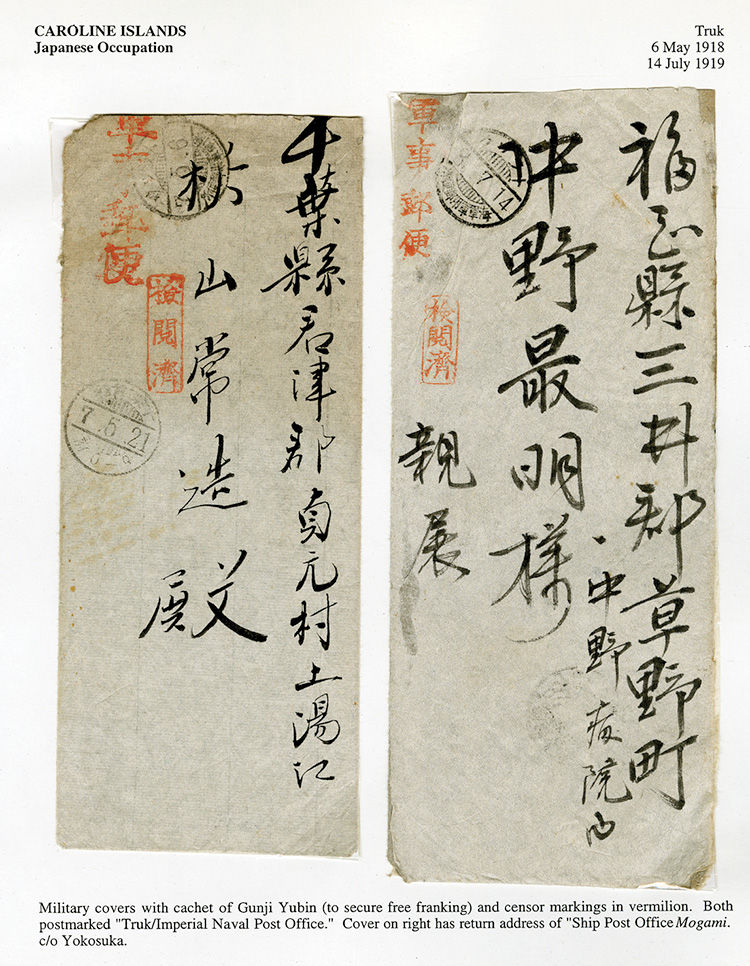 CAROLINE ISLANDS
Japanese Occupation
Truk
6 May 1918
14 July 1919
千葉縣君津郡貞元村上湯江
山常造殿
軍事郵便
檢閲濟
7.5.21
福岡縣三井郡草野町
中野病院内
中野最明様
親展
軍事郵便
檢閲濟
7.14
Military covers with cachet of Gunji Yubin (to secure free franking) and censor markings in vermilion. Both
postmarked "Truk/Imperial Naval Post Office." Cover on right has return address of "Ship Post Office Mogami.
c/o Yokosuka.